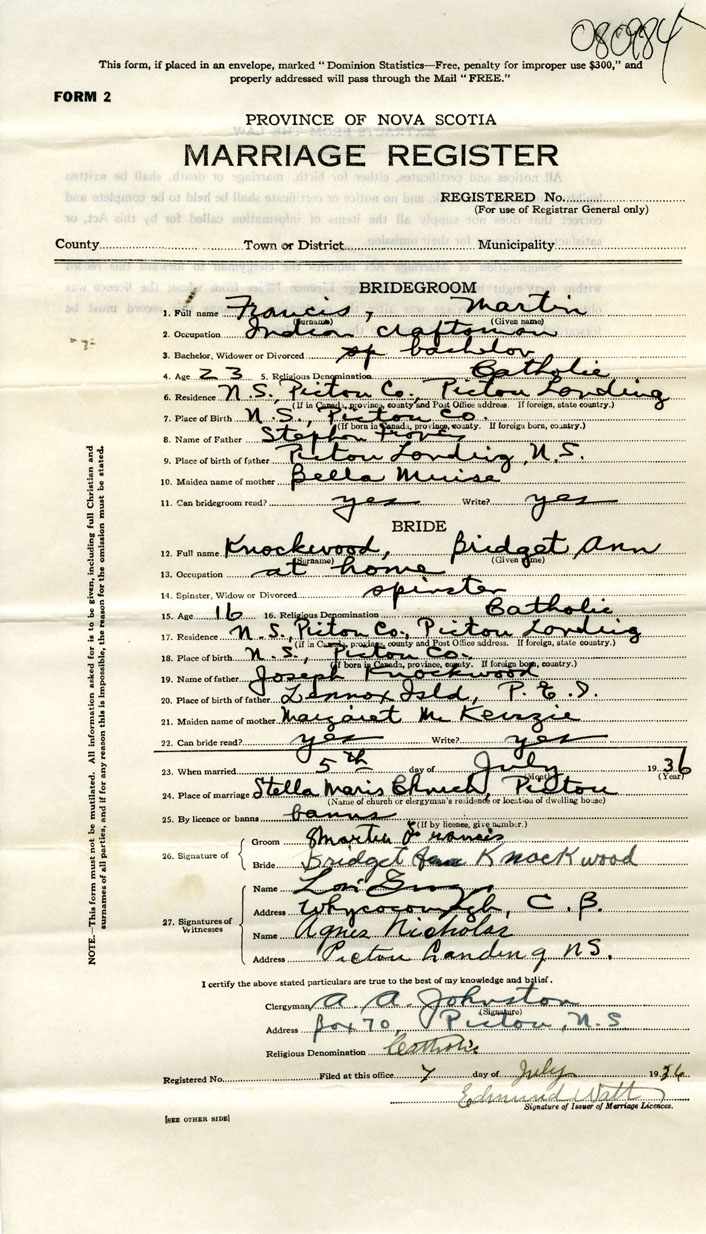 080984
This form, if placed in an envelope, marked "Dominion Statistics—Free, penalty for improper use $300," and
properly addressed will pass through the Mail "FREE."
FORM 2
PROVINCE OF NOVA SCOTIA
MARRIAGE REGISTER
REGISTERED No.
(For use of Registrar General only)
County Town or District Municipality
BRIDEGROOM
1. Full name Francis, Martin
(Surname) (Given name)
2. Occupation Indian craftsman
3. Bachelor, Widower or Divorced bachelor
4. Age 23 5. Religious Denomination Catholic
6. Residence N.S., Pictou Co., Pictou Landing
(If in Canada, province, county and Post Office address. If foreign, state country.)
7. Place of Birth N.S., Pictou Co.
(If born in Canada, province, county. If foreign born, country.)
8. Name of Father Stephen
9. Place of birth of father Pictou Landing, N.S.
10. Maiden name of mother Bella Muise
11. Can bridegroom read? yes Write? yes
BRIDE
12. Full name Knockwood, Bridget Ann
(Surname) (Given name)
13. Occupation at home
14. Spinster, Widow or Divorced spinster
15. Age 16 16. Religious Denomination Catholic
17. Residence N.S., Pictou Co., Pictou Landing
(If in Canada, province, county and Post Office address. If foreign, state country.)
18. Place of birth N.S., Pictou Co.
(If born in Canada, province, county. If foreign born, country.)
19. Name of father Joseph Knockwood
20. Place of birth of father Lennox Isld, P.E.I.
21. Maiden name of mother Margaret McKenzie
22. Can bride read? yes Write? yes
23. When married 5th day of July 1936
(Month) (Year)
24. Place of marriage Stella Maris Church, Pictou
(Name of church or clergyman's residence or location of dwelling house)
25. By licence or banns banns
(If by licence, give number.)
26. Signature of
Groom Martin Francis
Bride Bridget Ann Knockwood
27. Signatures of Witnesses
Name
Address Whycocomagh, C.B.
Name Agnes Nicholas
Address Pictou Landing NS.
I certify the above stated particulars are true to the best of my knowledge and belief.
Clergyman A. A. Johnston
(Signature)
Address Box 70, Pictou, N.S
Religious Denomination Catholic
Registered No. Filed at this office 7 day of July 1936
Edmund Watt
Signature of Issuer of Marriage Licences.
[SEE OTHER SIDE]
NOTE.—This form must not be mutilated. All information asked for is to be given, including full Christian and
surnames of all parties, and if for any reason this is impossible, the reason for the omission must be stated.